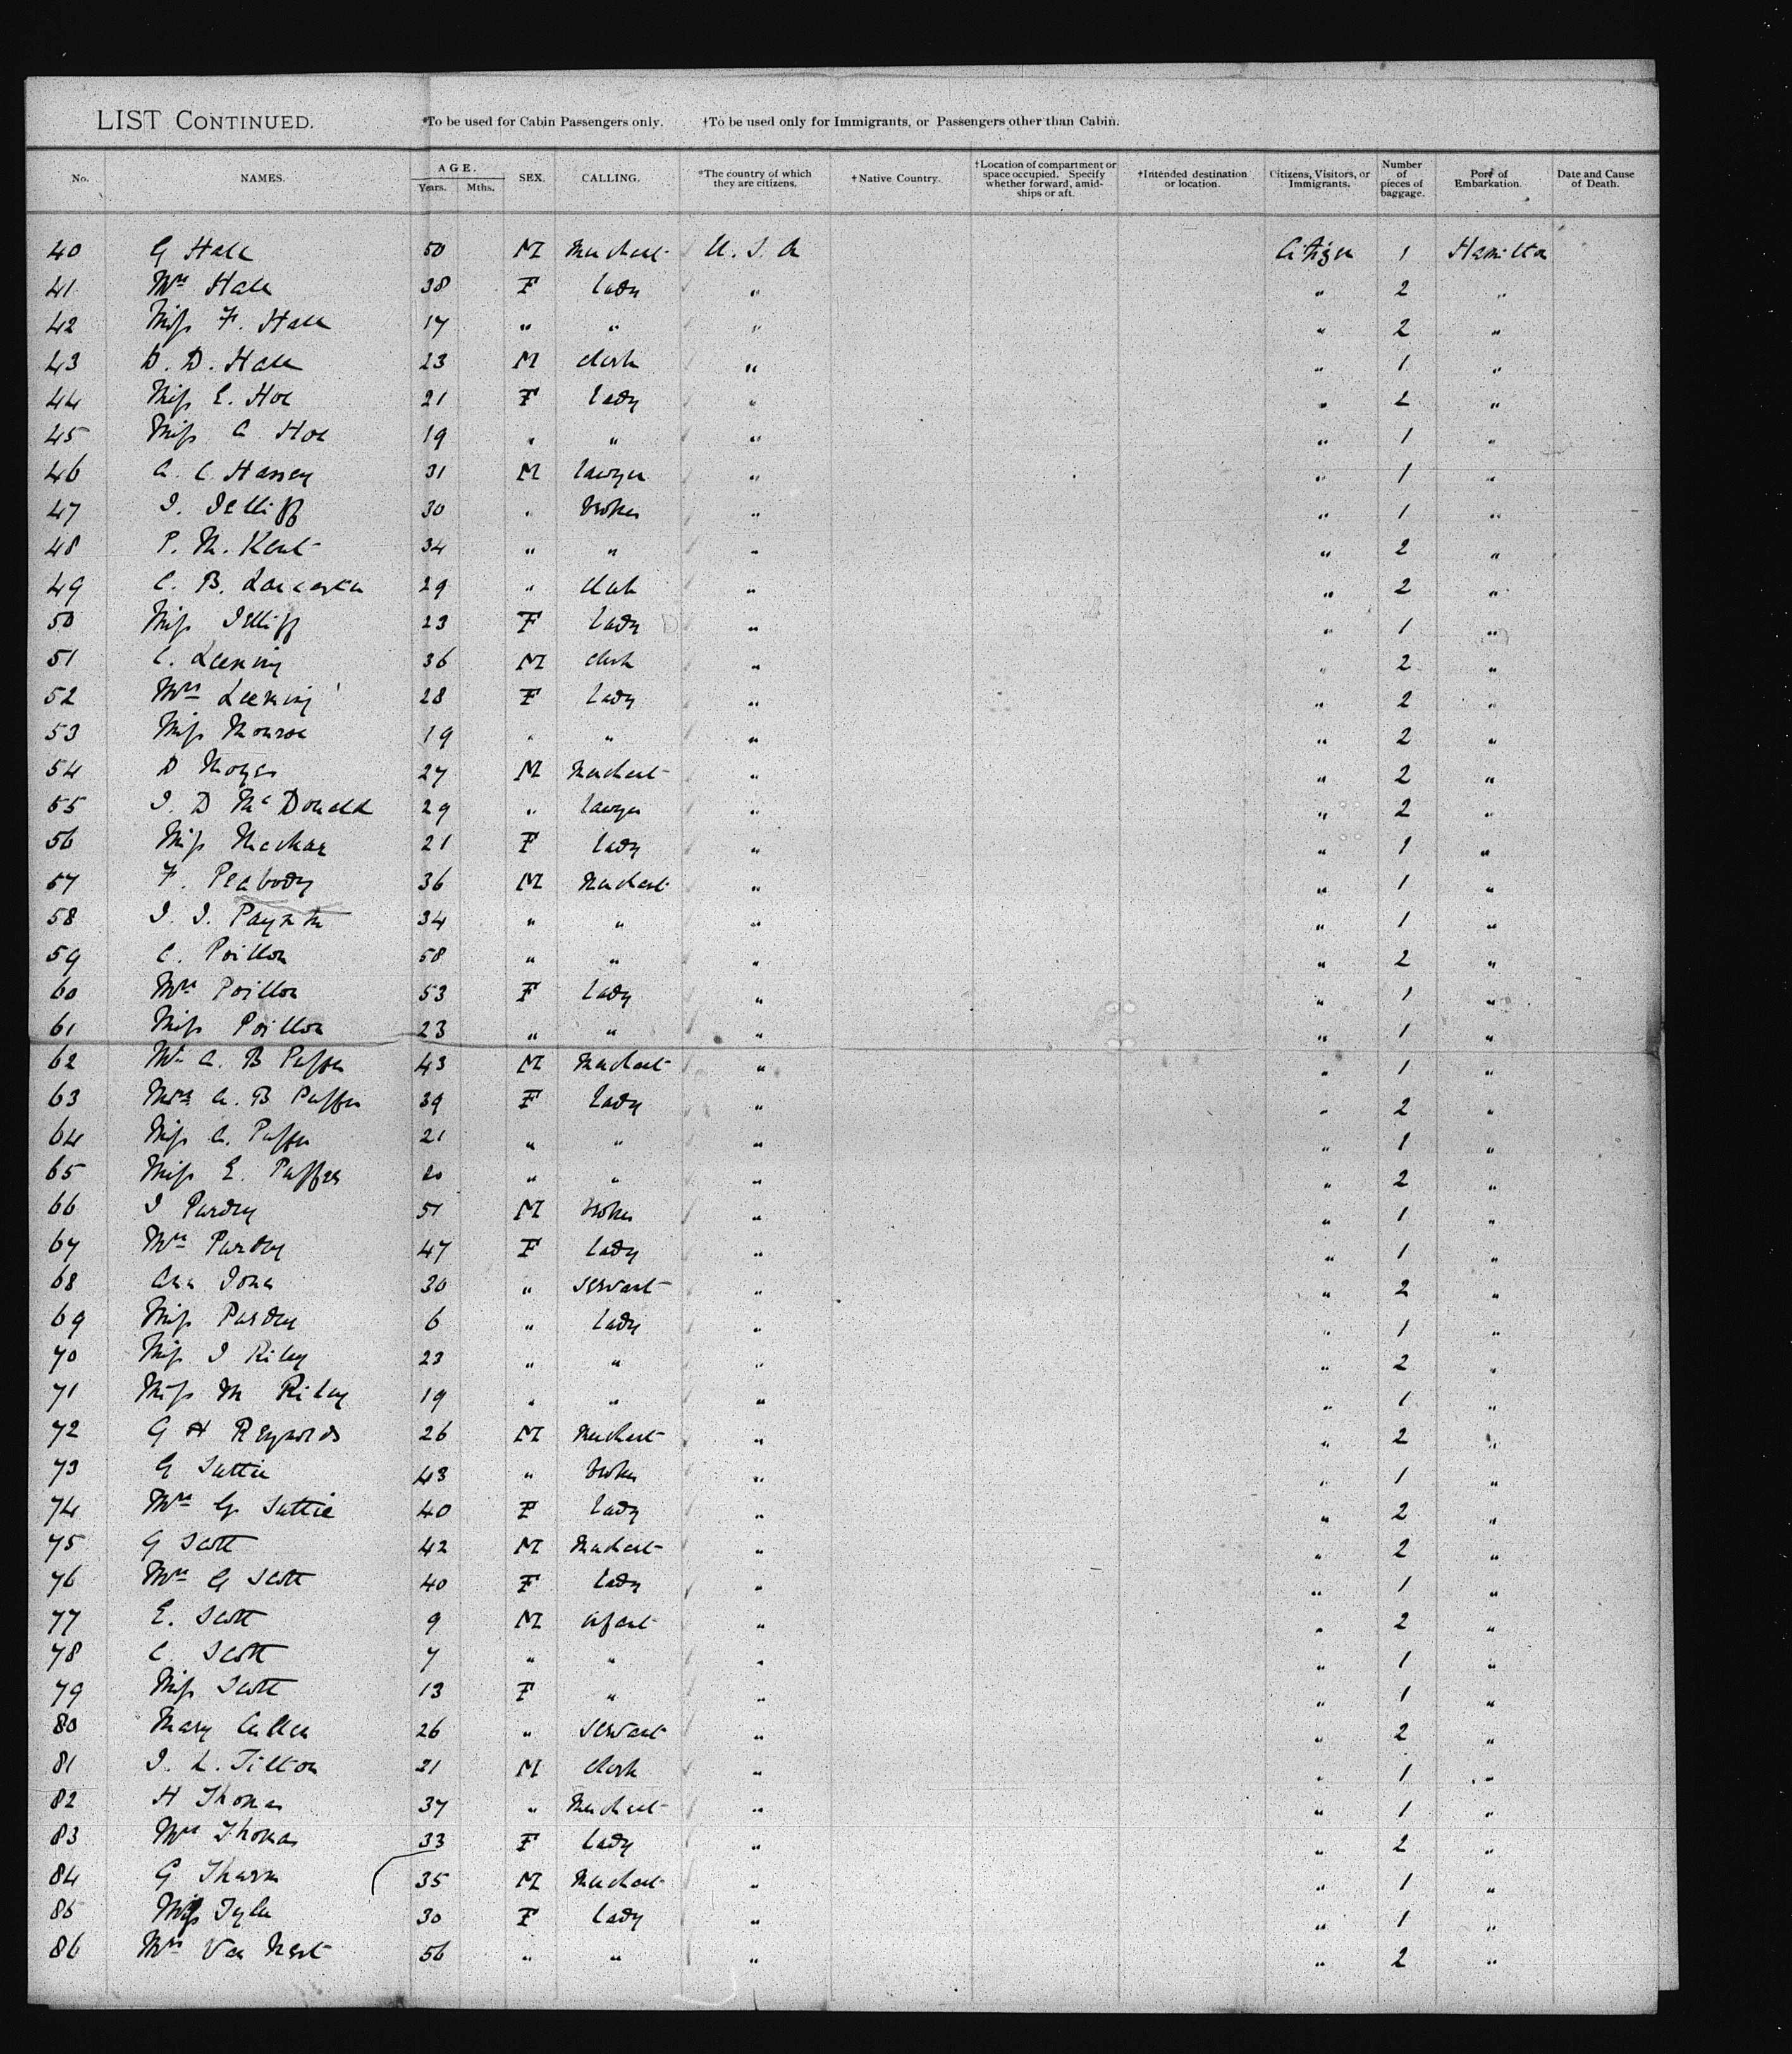 LIST CONTINUED. *To be used for Cabin Passengers only. †To be used only for Immigrants, or Passengers other than Cabin.
No. NAMES. AGE. Years. Mths. SEX. CALLING. *The country of which they are citizens. †Native Country. †Location of compartment or space occupied. Specify whether forward, amidships or aft. †Intended destination or location. Citizens, Visitors, or Immigrants. Number of pieces of baggage. Port of Embarkation. Date and Cause of Death.
40 G Hall 50 M Merchant U. S. A Citizen 1 Hamilton
41 Mrs Hall 38 F Lady " " 2 "
42 Miss F. Hall 17 " " " " 2 "
43 D. D. Hall 23 M Clerk " " 1 "
44 Miss E. Hoe 21 F Lady " " 2 "
45 Miss A Hoe 19 " " " " 1 "
46 A. C. Hassey 31 M Lawyer " " 1 "
47 J. Jelliff 30 " Broker " " 1 "
48 P. M. Kent 34 " " " " 2 "
49 C. B. Lancaster 29 " Clerk " " 2 "
50 Miss Jelliff 23 F Lady " " 1 "
51 C. Leening 36 M Clerk " " 2 "
52 Mrs Leening 28 F Lady " " 2 "
53 Miss Monroe 19 " " " " 2 "
54 D Moyes 27 M Merchant " " 2 "
55 J. D McDonald 29 " Lawyer " " 2 "
56 Miss 21 F Lady " " 1 "
57 F. Peabody 36 M Merchant " " 1 "
58 J. J. 34 " " " " 1 "
59 C. Poillon 58 " " " " 2 "
60 Mrs Poillon 53 F Lady " " 1 "
61 Miss Poillon 23 " " " " 1 "
62 Mr A. B Puffer 43 M Merchant " " 1 "
63 Mrs A. B Puffer 39 F Lady " " 2 "
64 Miss A. Puffer 21 " " " " 1 "
65 Miss E. Puffer 20 " " " " 2 "
66 J Purdy 51 M Broker " " 1 "
67 Mrs Purdy 47 F Lady " " 1 "
68 Ann Jones 30 " Servant " " 2 "
69 Miss Purdy 6 " Lady " " 1 "
70 Miss J Riley 23 " " " " 2 "
71 Miss M Riley 19 " " " " 1 "
72 G H Reynolds 26 M Merchant " " 2 "
73 G Suttie 43 " Broker " " 1 "
74 Mrs G Suttie 40 F Lady " " 2 "
75 G Scott 42 M Merchant " " 2 "
76 Mrs G Scott 40 F Lady " " 1 "
77 E. Scott 9 M infant " " 2 "
78 C. Scott 7 " " " " 1 "
79 Miss Scott 13 F " " " 1 "
80 Mary Cullen 26 " Servant " " 2 "
81 J. L. Tilton 21 M Clerk " " 1 "
82 H Thomas 37 " Merchant " " 1 "
83 Mrs Thomas 33 F Lady " " 2 "
84 G 35 M Merchant " " 1 "
85 Miss Tyler 30 F Lady " " 1 "
86 Mrs Van Nest 56 " " " " 2 "